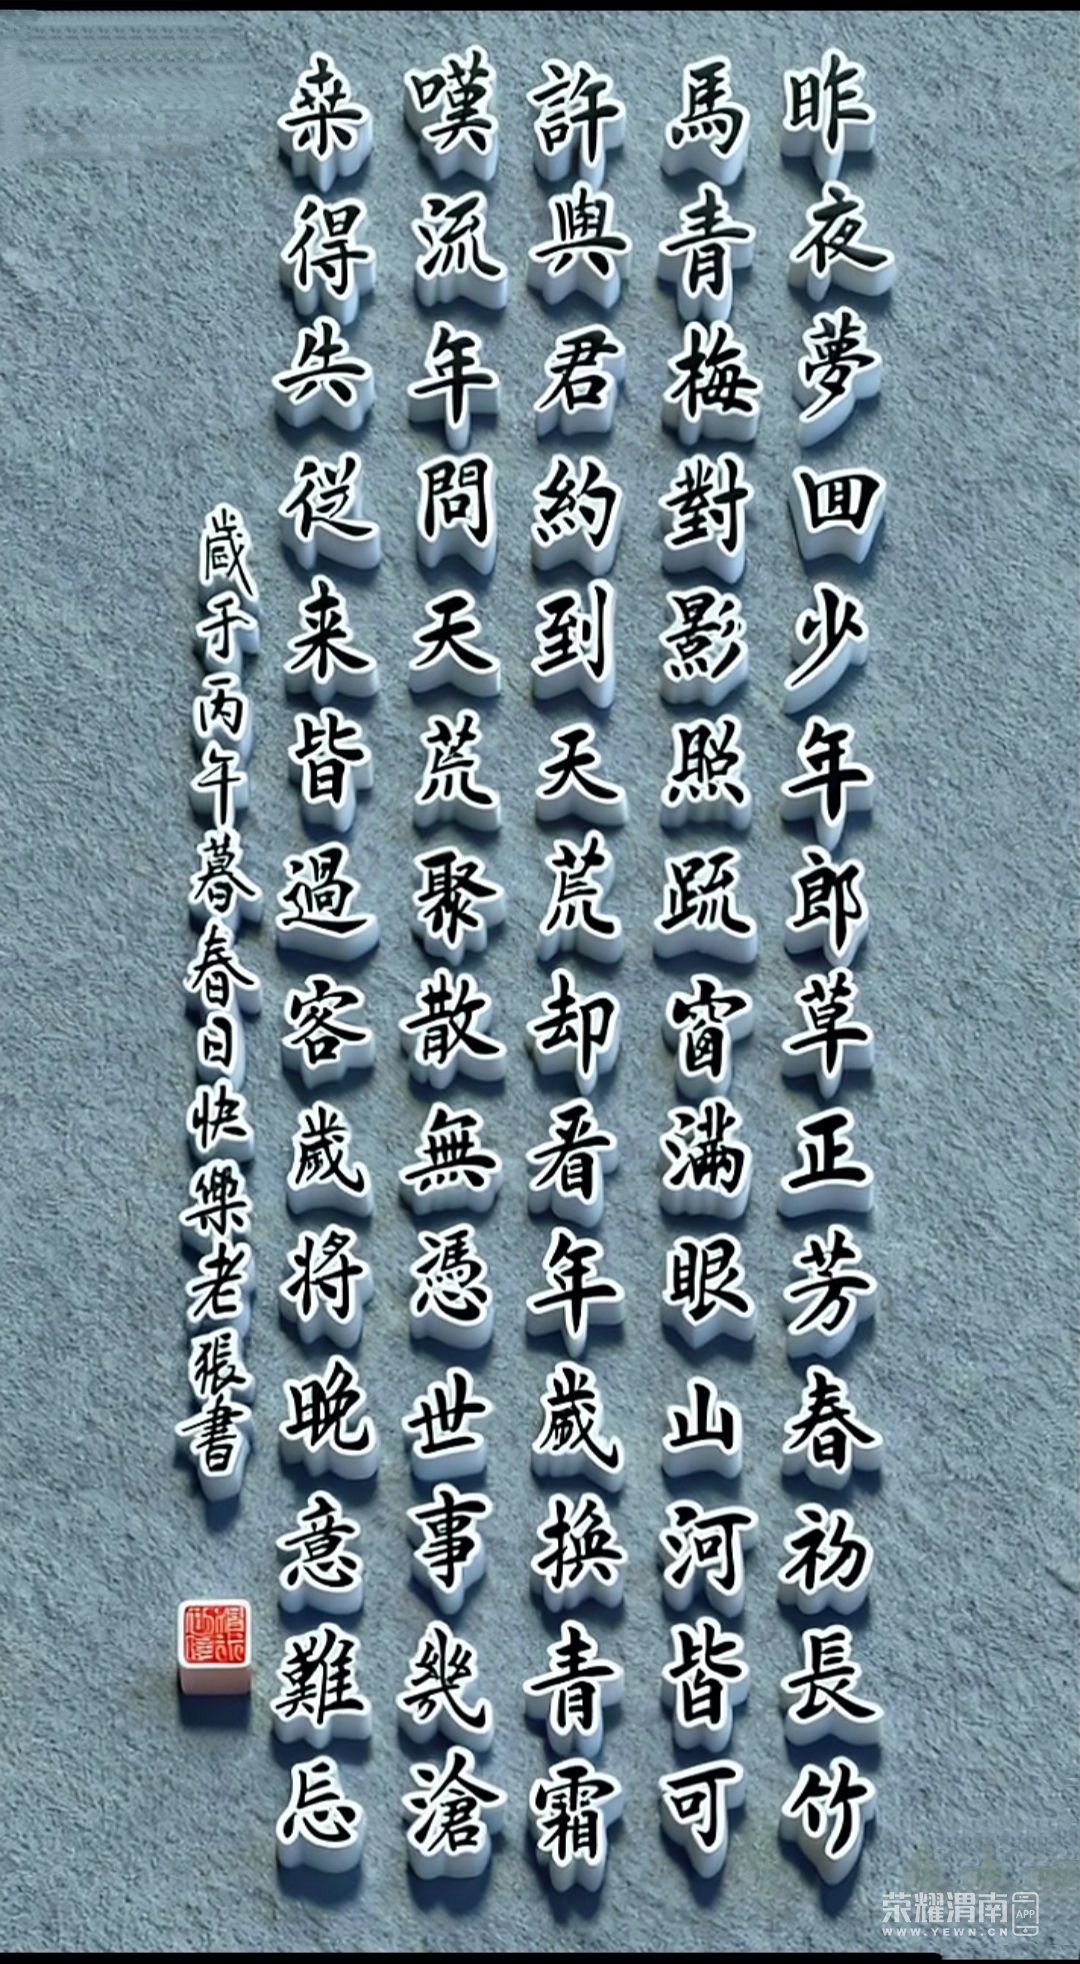 昨夜夢囬少年郎草正芳春初長竹
馬青梅對影照疏窗滿眼山河皆可
許與君約到天荒却看年歲換青霜
嘆流年問天荒聚散無憑世事幾滄
桒得失從来皆過客歲將晚意難忘
歲于丙午暮春日快樂老張書
荣耀渭南
APP
WWW.YEWN.CN